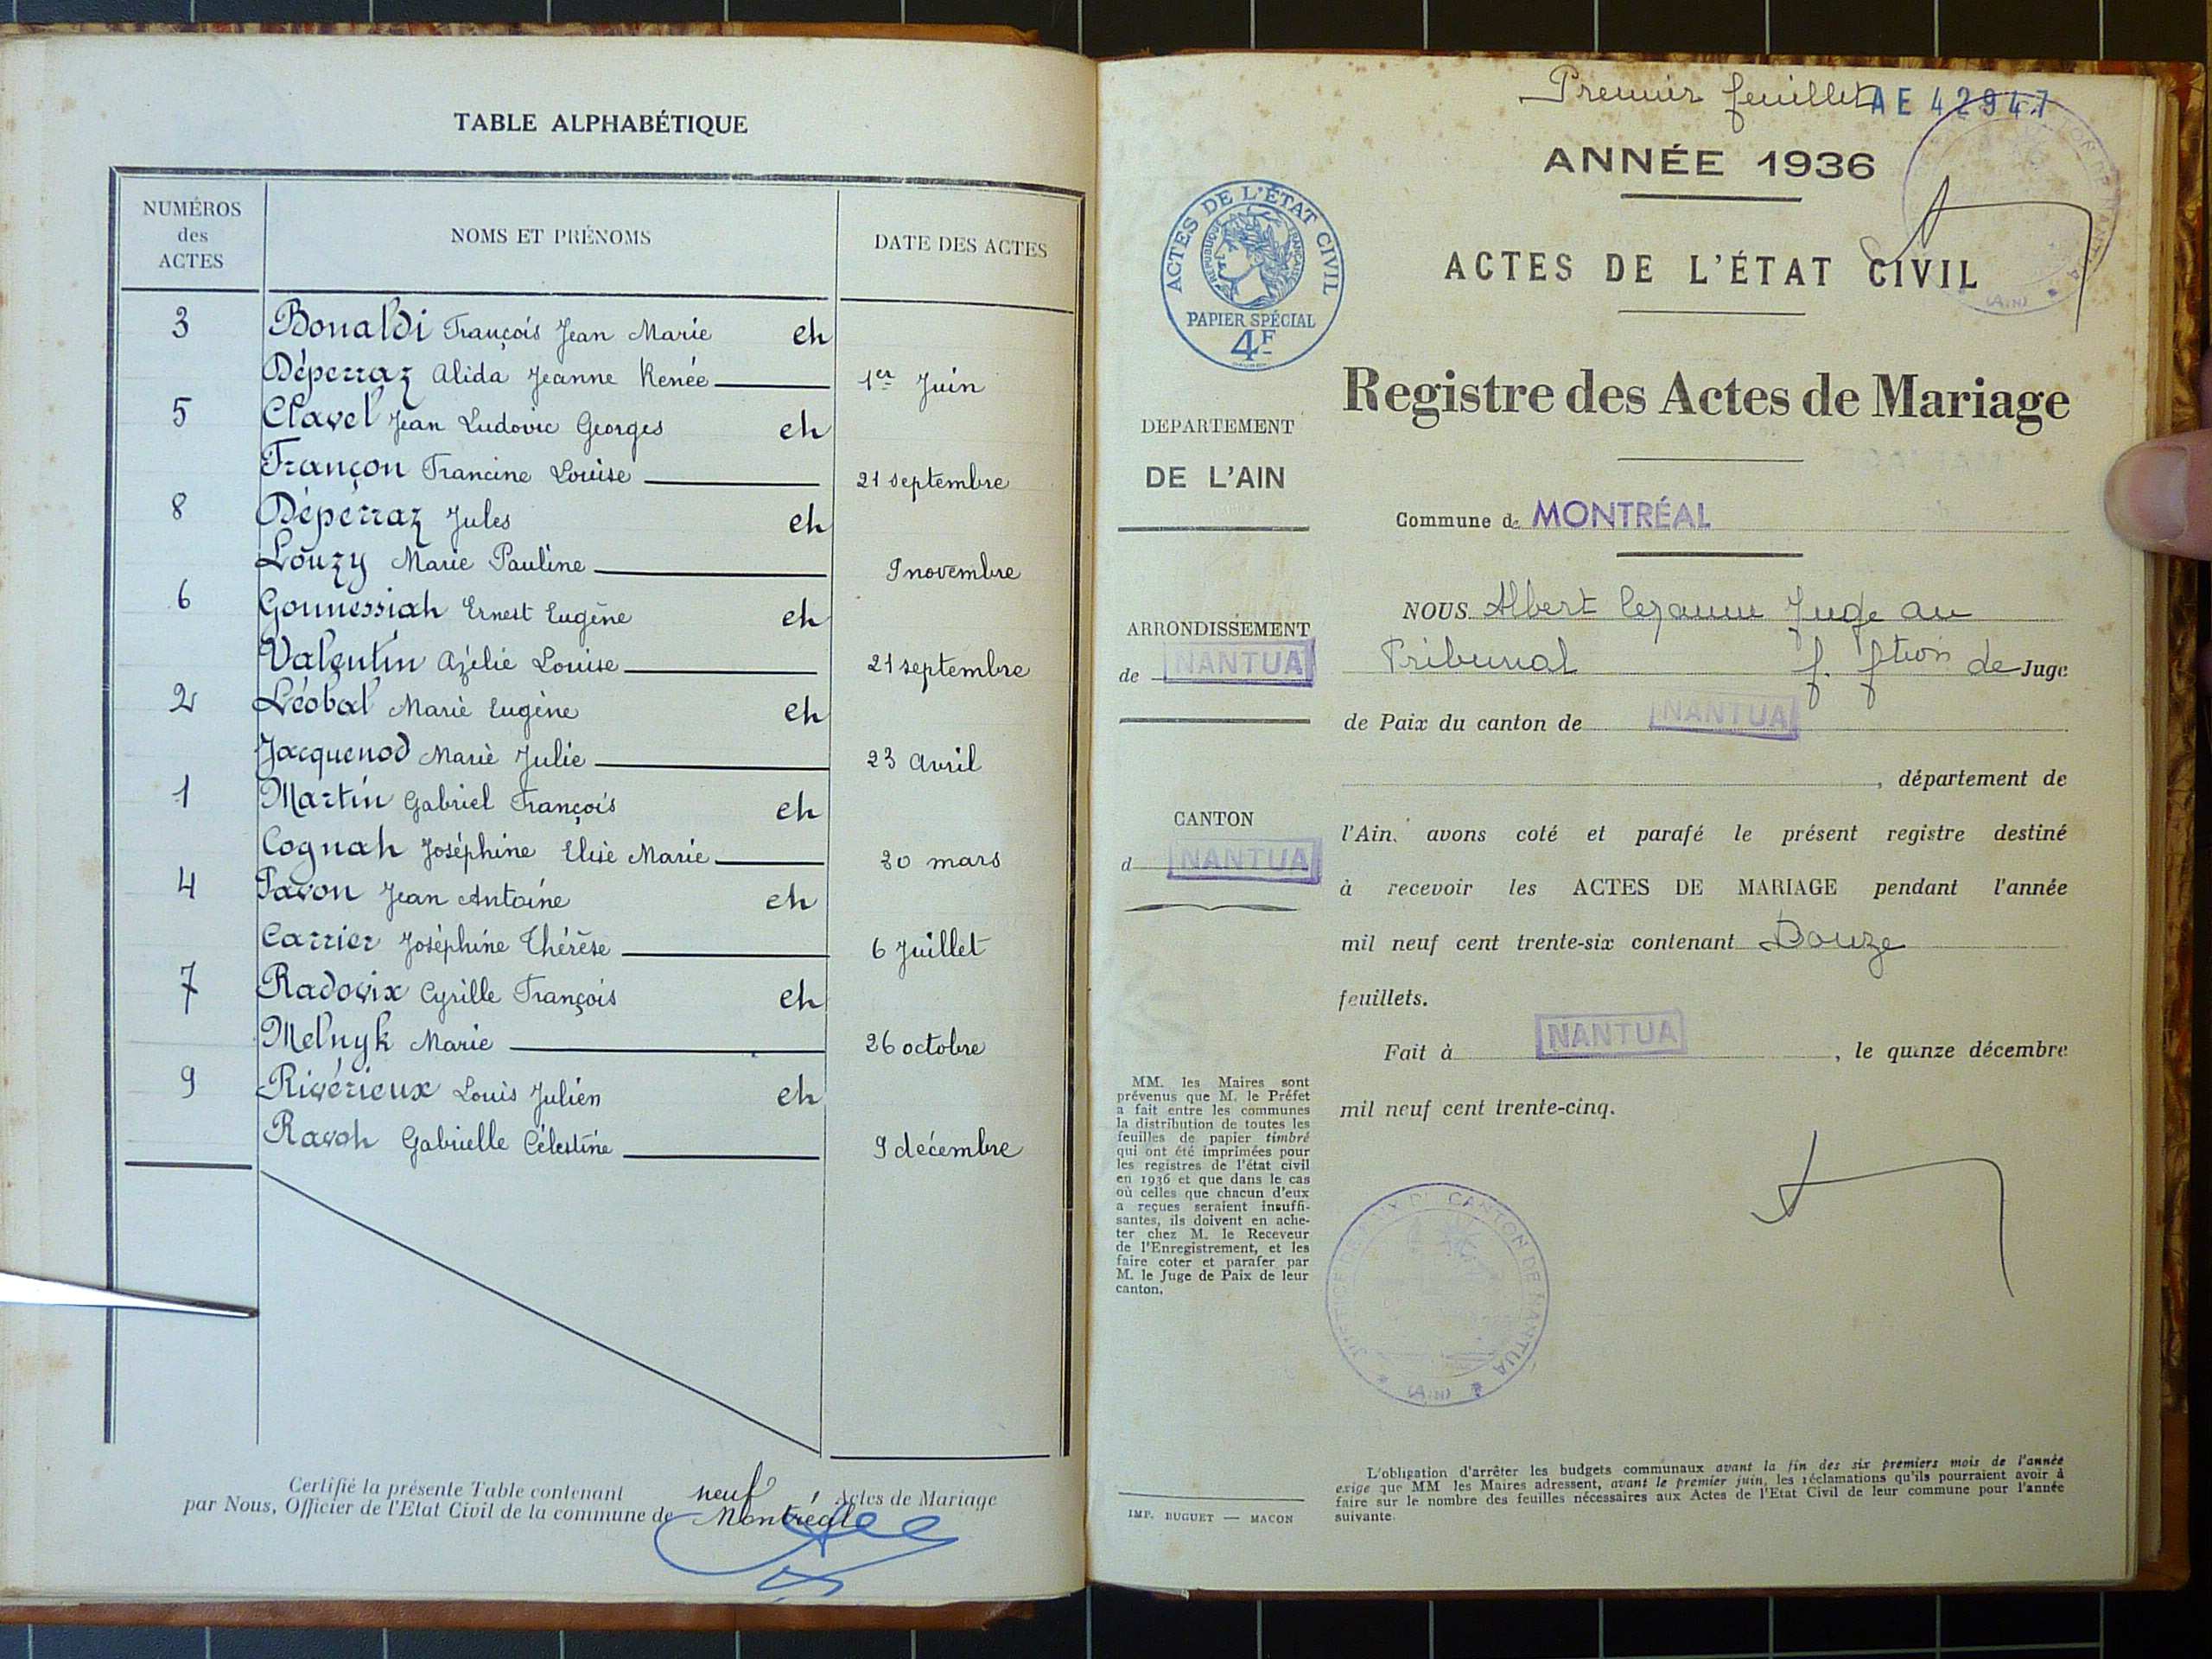 TABLE ALPHABÉTIQUE
NUMÉROS
des
ACTES
NOMS ET PRÉNOMS
DATE DES ACTES
3 Bonaldi François Jean Marie et
Déperraz Alida Jeanne Renée 1er Juin
5 Clavel Jean Ludovic Georges et
Françon Francine Louise 21 septembre
8 Dépérraz Jules et
Louzy Marie Pauline 9 novembre
6 Gonnessiat Ernest Eugène et
Valentin Azélie Louise 21 septembre
2 Léobal Marie Eugène et
Jacquenod Marie Julie 23 Avril
1 Martin Gabriel François et
Cognat Joséphine Elise Marie 20 mars
4 Pavon Jean Antoine et
Carrier Joséphine Thérèse 6 Juillet
7 Radovix Cyrille François et
Melnyk Marie 26 octobre
9 Rivérieux Louis Julien et
Ravot Gabrielle Célestine 9 décembre
Certifié la présente Table contenant neuf Actes de Mariage
par Nous, Officier de l'Etat Civil de la commune de Montréal
Premier feuillet AE 42947
ANNÉE 1936
ACTES DE L'ÉTAT CIVIL
RÉPUBLIQUE FRANÇAISE
PAPIER SPÉCIAL
4F
ACTES DE L'ÉTAT CIVIL
Registre des Actes de Mariage
DEPARTEMENT
DE L'AIN
Commune de MONTRÉAL
ARRONDISSEMENT
de NANTUA
CANTON
d NANTUA
NOUS Albert Juge au
Tribunal f. ftion de Juge
de Paix du canton de NANTUA
, département de
l'Ain, avons coté et parafé le présent registre destiné
à recevoir les ACTES DE MARIAGE pendant l'année
mil neuf cent trente-six contenant Douze
feuillets.
Fait à NANTUA, le quinze décembre
mil neuf cent trente-cinq.
MM. les Maires sont
prévenus que M. le Préfet
a fait entre les communes
la distribution de toutes les
feuilles de papier timbré
qui ont été imprimées pour
les registres de l'état civil
en 1936 et que dans le cas
où celles que chacun d'eux
a reçues seraient insuffi-
santes, ils doivent en ache-
ter chez M. le Receveur
de l'Enregistrement, et les
faire coter et parafer par
M. le Juge de Paix de leur
canton.
JUSTICE DE PAIX DU CANTON DE NANTUA
(AIN)
L'obligation d'arrêter les budgets communaux avant la fin des six premiers mois de l'année
exige que MM les Maires adressent, avant le premier juin, les réclamations qu'ils pourraient avoir à
faire sur le nombre des feuilles nécessaires aux Actes de l'Etat Civil de leur commune pour l'année
suivante.
IMP. BUGUET — MACON